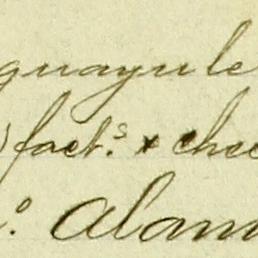 guayule
) fact.s & chec
o. Alam